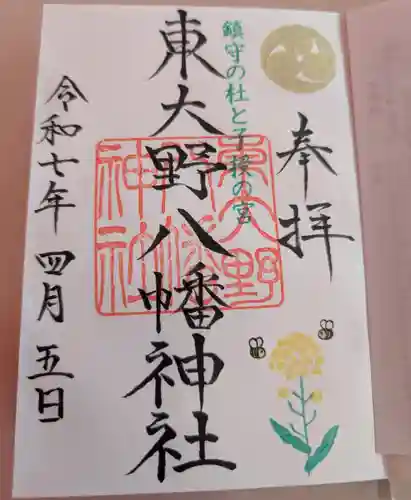 奉拝
鎮守の杜と子授の宮
東大野八幡神社
東大野
八幡
神社
令和七年四月五日